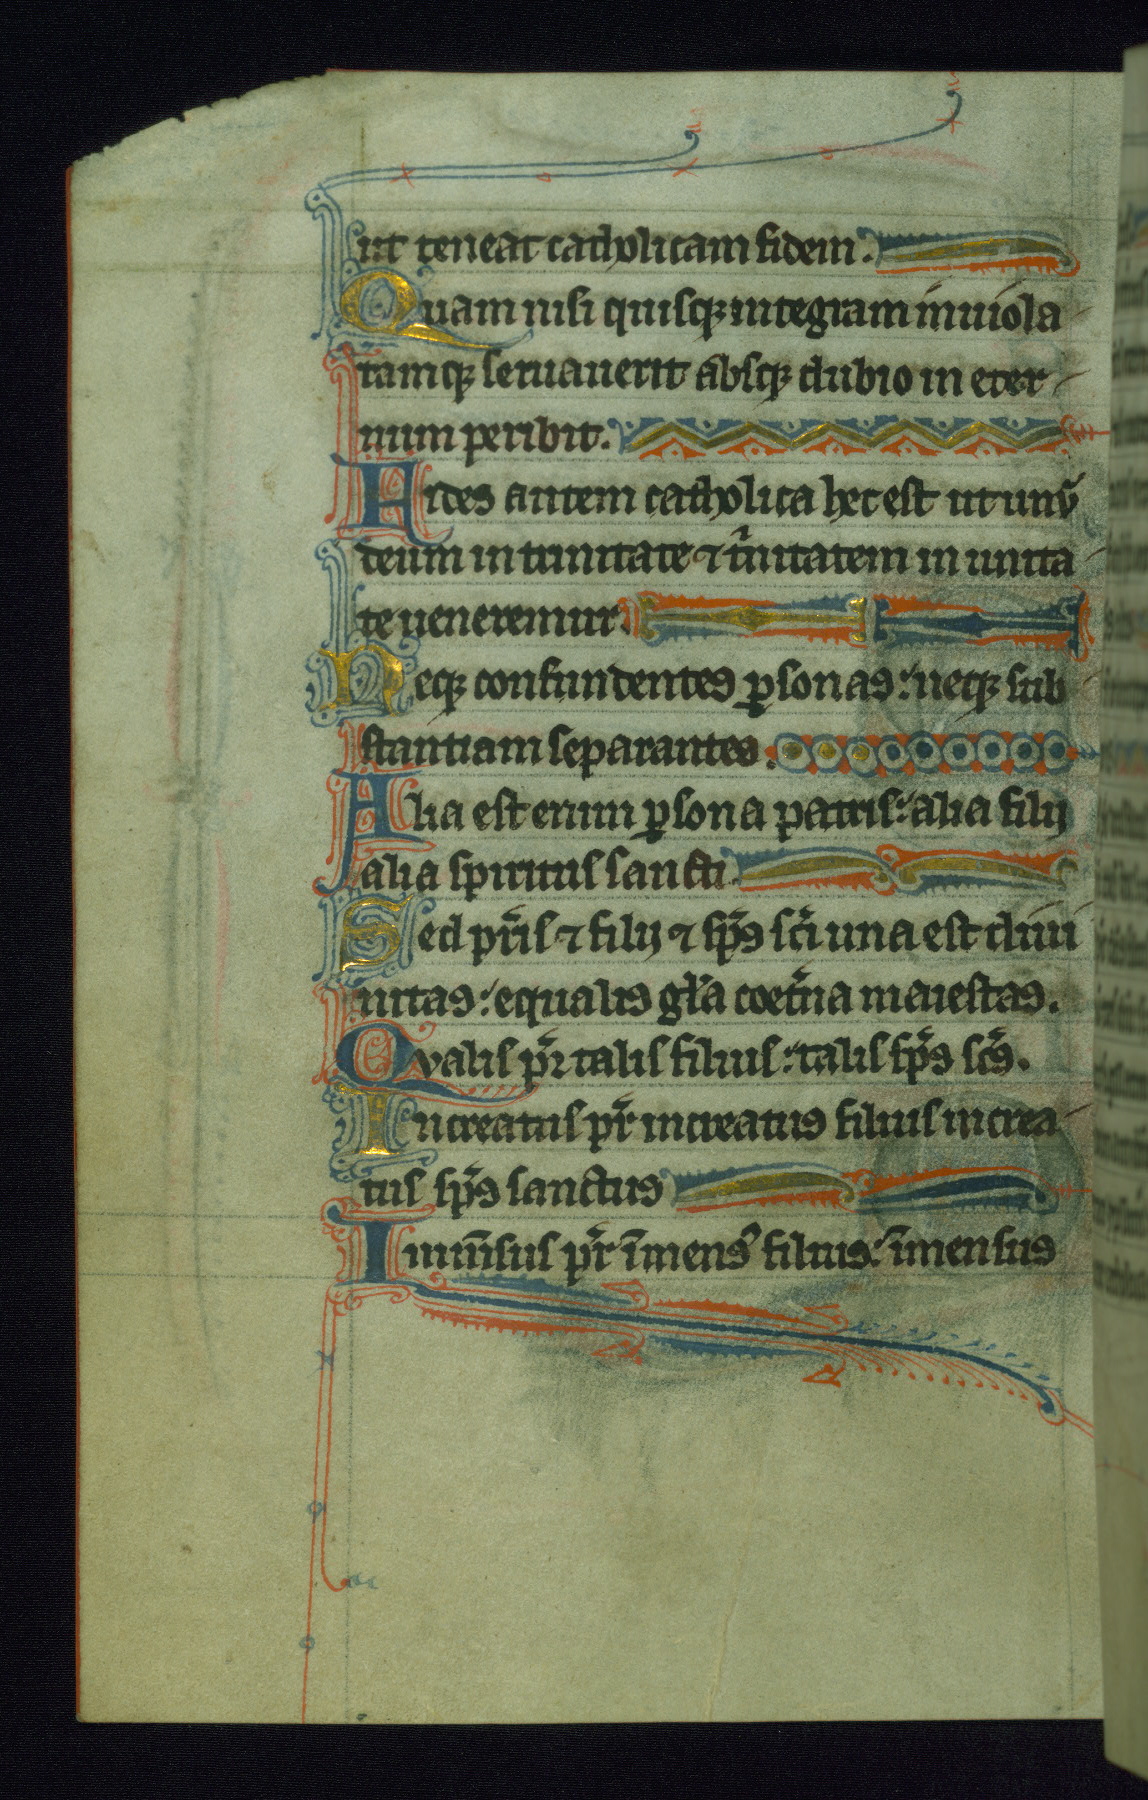 ut teneat catholicam fidem.
Quam nisi quisqꝫ integram inuiola
tamqꝫ seruauerit absqꝫ dubio in eter
num peribit.
Fides autem catholica hec est ut unū
deum in trinitate ⁊ t̍nitatem in unita
te ueneremur.
Neqꝫ confundentes ꝑsonas: neqꝫ sub
stantiam separantes.
Alia est enim ꝑsona patris: alia filij
alia spiritus sancti.
Sed pr̄is ⁊ filij ⁊ sp̄s sc̄i una est diui
nitas: equalis gl̄a coet̄na maiestas.
Qualis pr̄ talis filius: talis sp̄s sc̄s.
Increatus pr̄ increatus filius increa
tus sp̄s sanctus
Inmēsus pr̄ īmens᾽ filius: īmensus